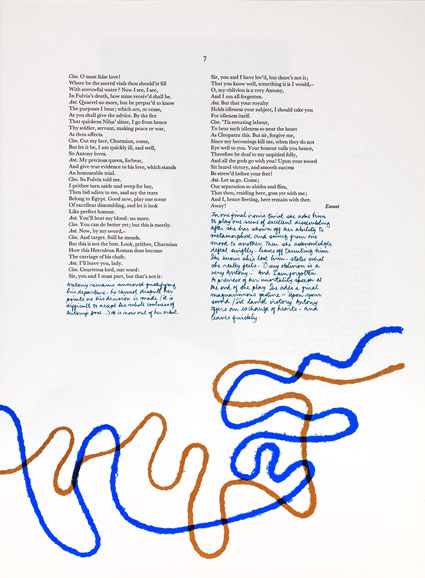 7
Cleo. O most false love!
Where be the sacred vials thou should'st fill
With sorrowful water? Now I see, I see,
In Fulvia's death, how mine receiv'd shall be.
Ant. Quarrel no more, but be prepar'd to know
The purposes I bear; which are, or cease,
As you shall give the advice. By the fire
That quickens Nilus' slime, I go from hence
Thy soldier, servant, making peace or war,
As thou affects.
Cleo. Cut my lace, Charmian, come,
But let it be, I am quickly ill, and well,
So Antony loves.
Ant. My precious queen, forbear,
And give true evidence to his love, which stands
An honourable trial.
Cleo. So Fulvia told me.
I prithee turn aside and weep for her,
Then bid adieu to me, and say the tears
Belong to Egypt. Good now, play one scene
Of excellent dissembling, and let it look
Like perfect honour.
Ant. You'll heat my blood: no more.
Cleo. You can do better yet; but this is meetly.
Ant. Now, by my sword,—
Cleo. And target. Still he mends.
But this is not the best. Look, prithee, Charmian
How this Herculean Roman does become
The carriage of his chafe.
Ant. I'll leave you, lady.
Cleo. Courteous lord, one word:
Sir, you and I must part, but that's not it:
Antony remains unmoved justifying
his departure. he cannot dispute her
points as his decision is made. (it is
difficult to accept the whole coolness of
Antony's pose
it is now out of her
Sir, you and I have lov'd, but there's not it;
That you know well, something it is I would,—
O, my oblivion is a very Antony,
And I am all forgotten.
Ant. But that your royalty
Holds idleness your subject, I should take you
For idleness itself.
Cleo. 'Tis sweating labour,
To bear such idleness so near the heart
As Cleopatra this. But sir, forgive me,
Since my becomings kill me, when they do not
Eye well to you. Your honour calls you hence,
Therefore be deaf to my unpitied folly,
And all the gods go with you! Upon your sword
Sit laurel victory, and smooth success
Be strew'd before your feet!
Ant. Let us go. Come;
Our separation so abides and flies,
That thou, residing here, goes yet with me;
And I, hence fleeting, here remain with thee.
Away! Exeunt
In one final ironic twist she asks him
to play one scene of excellent dissembling
after she has shown off her ability to
metamorphose and swing from one
mood to another. Then she acknowledges
defeat swiftly - leaves off taunting him
She knows she's lost him - states what
she really feels - O my oblivion is a
very Antony - And I am forgotten.
A preview of her immortality speech at
the end of the play. She adds a final
magnanimous gesture - Upon your
sword / Sit laurel victory Antony
offers an exchange of hearts - and
leaves quickly.